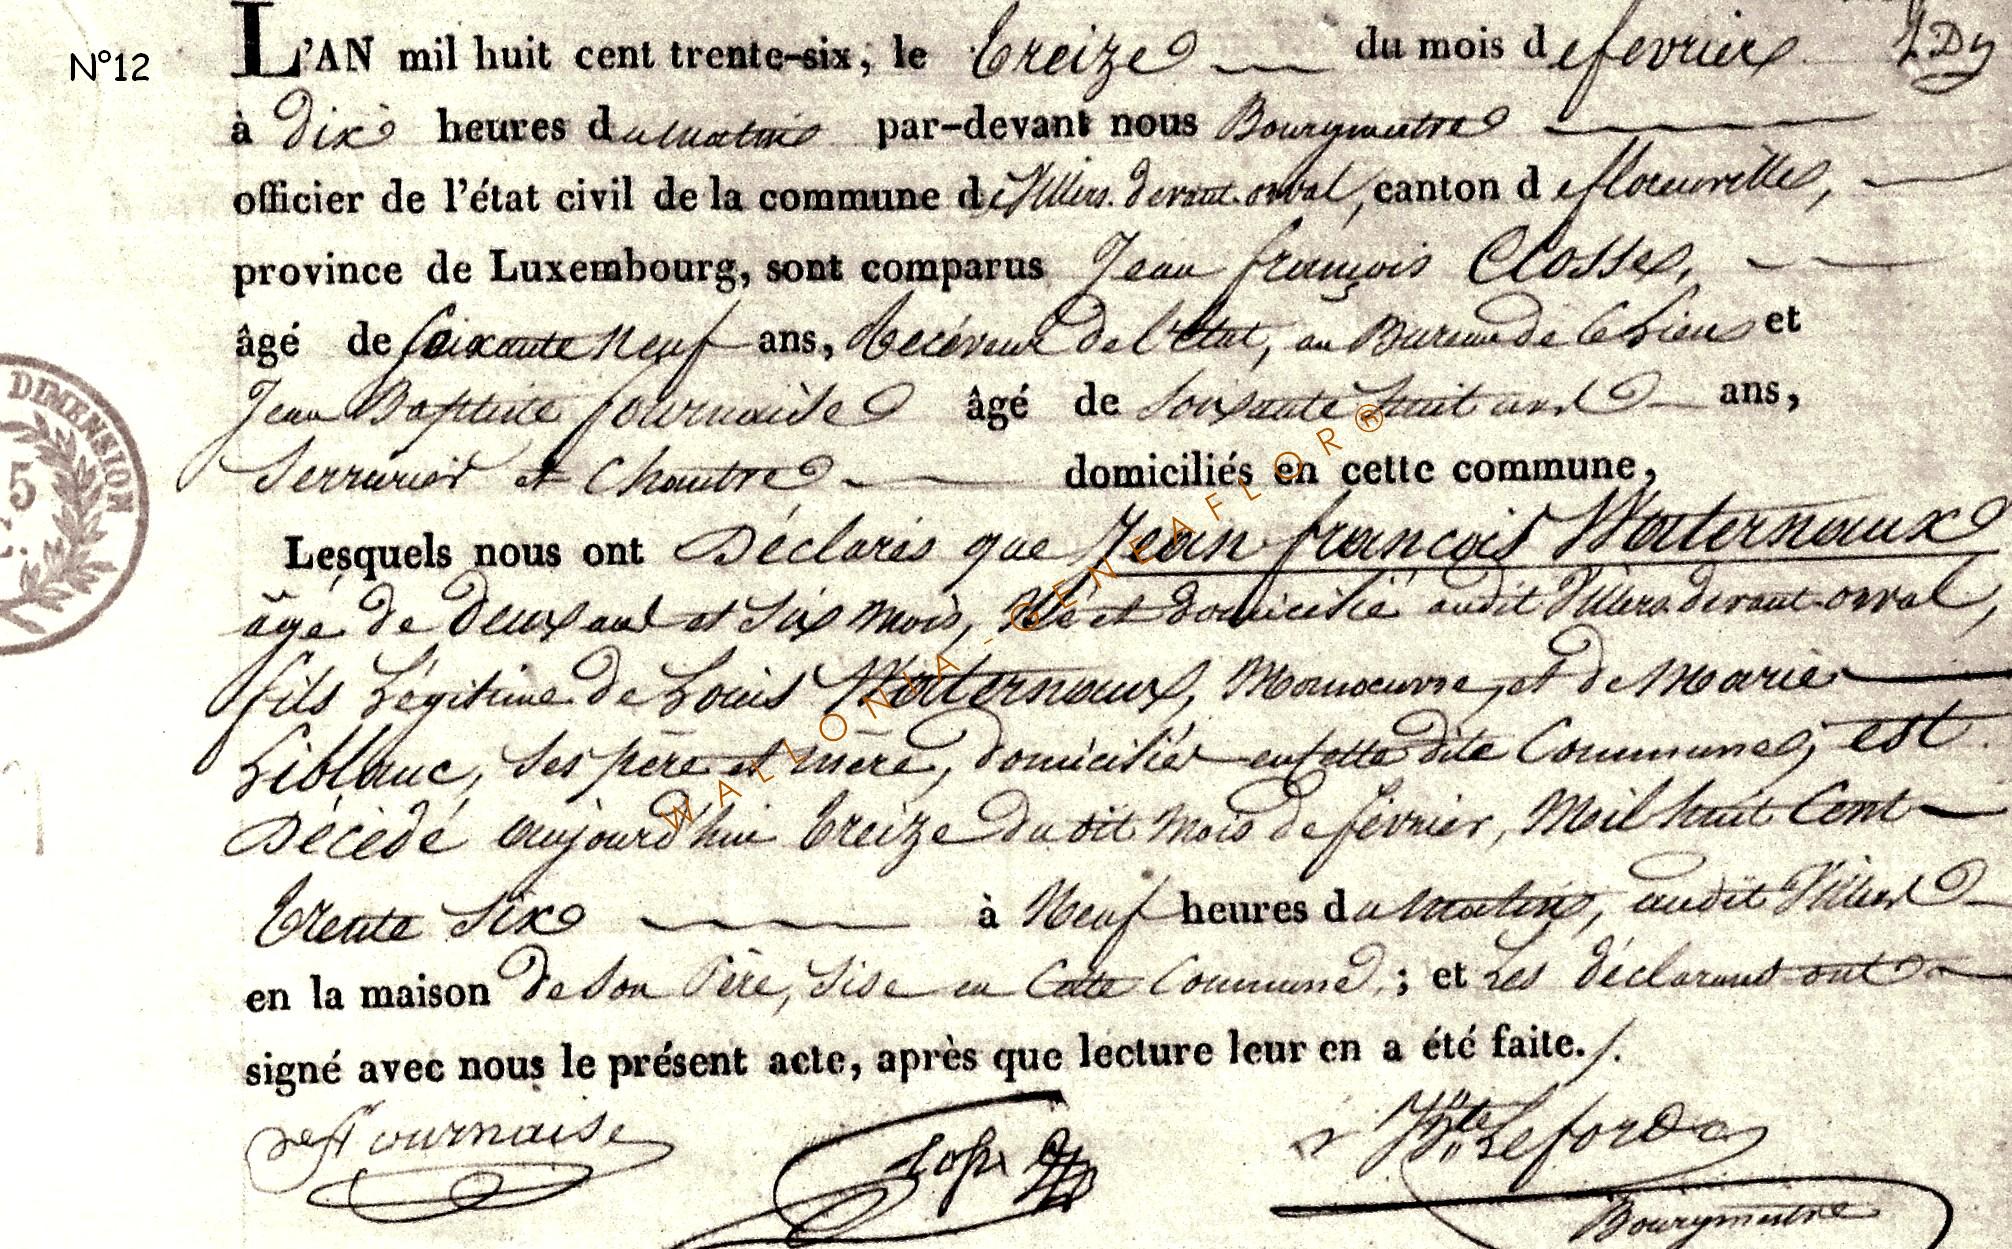 N°12
L'AN mil huit cent trente-six, le treize du mois de fevrier
à dix heures du matin par-devant nous Bourgmestre
officier de l'état civil de la commune de Villers-devant-orval, canton de florenville,
province de Luxembourg, sont comparus Jean françois Closse,
âgé de soixante Neuf ans, Recéveur de l'Etat, au Bureau de ce Lieu et
Jean Baptiste fournaise âgé de soixante huit ans ans,
Serrurier et Chantre domiciliés en cette commune,
Lesquels nous ont Déclarés que Jean françois Waternaux
âgé de deux ans et six mois, Né et domicilié audit Villers-devant-orval,
fils Légitime de Louis Waternaux, Manoeuvre, et de Marie
Liblanc, ses père et mère, domiciliés en cette dite Commune, est
Décédé aujourd'hui treize du dit mois de février, Mil huit Cent
trente six à Neuf heures du matin, audit Villers
en la maison de son Père, sise en Cette Commune ; et Les déclarans ont
signé avec nous le présent acte, après que lecture leur en a été faite./.
fournaise Closse Leford
Bourgmestre
DIMENSION
5
WALLONIA-GENEAFLOR®